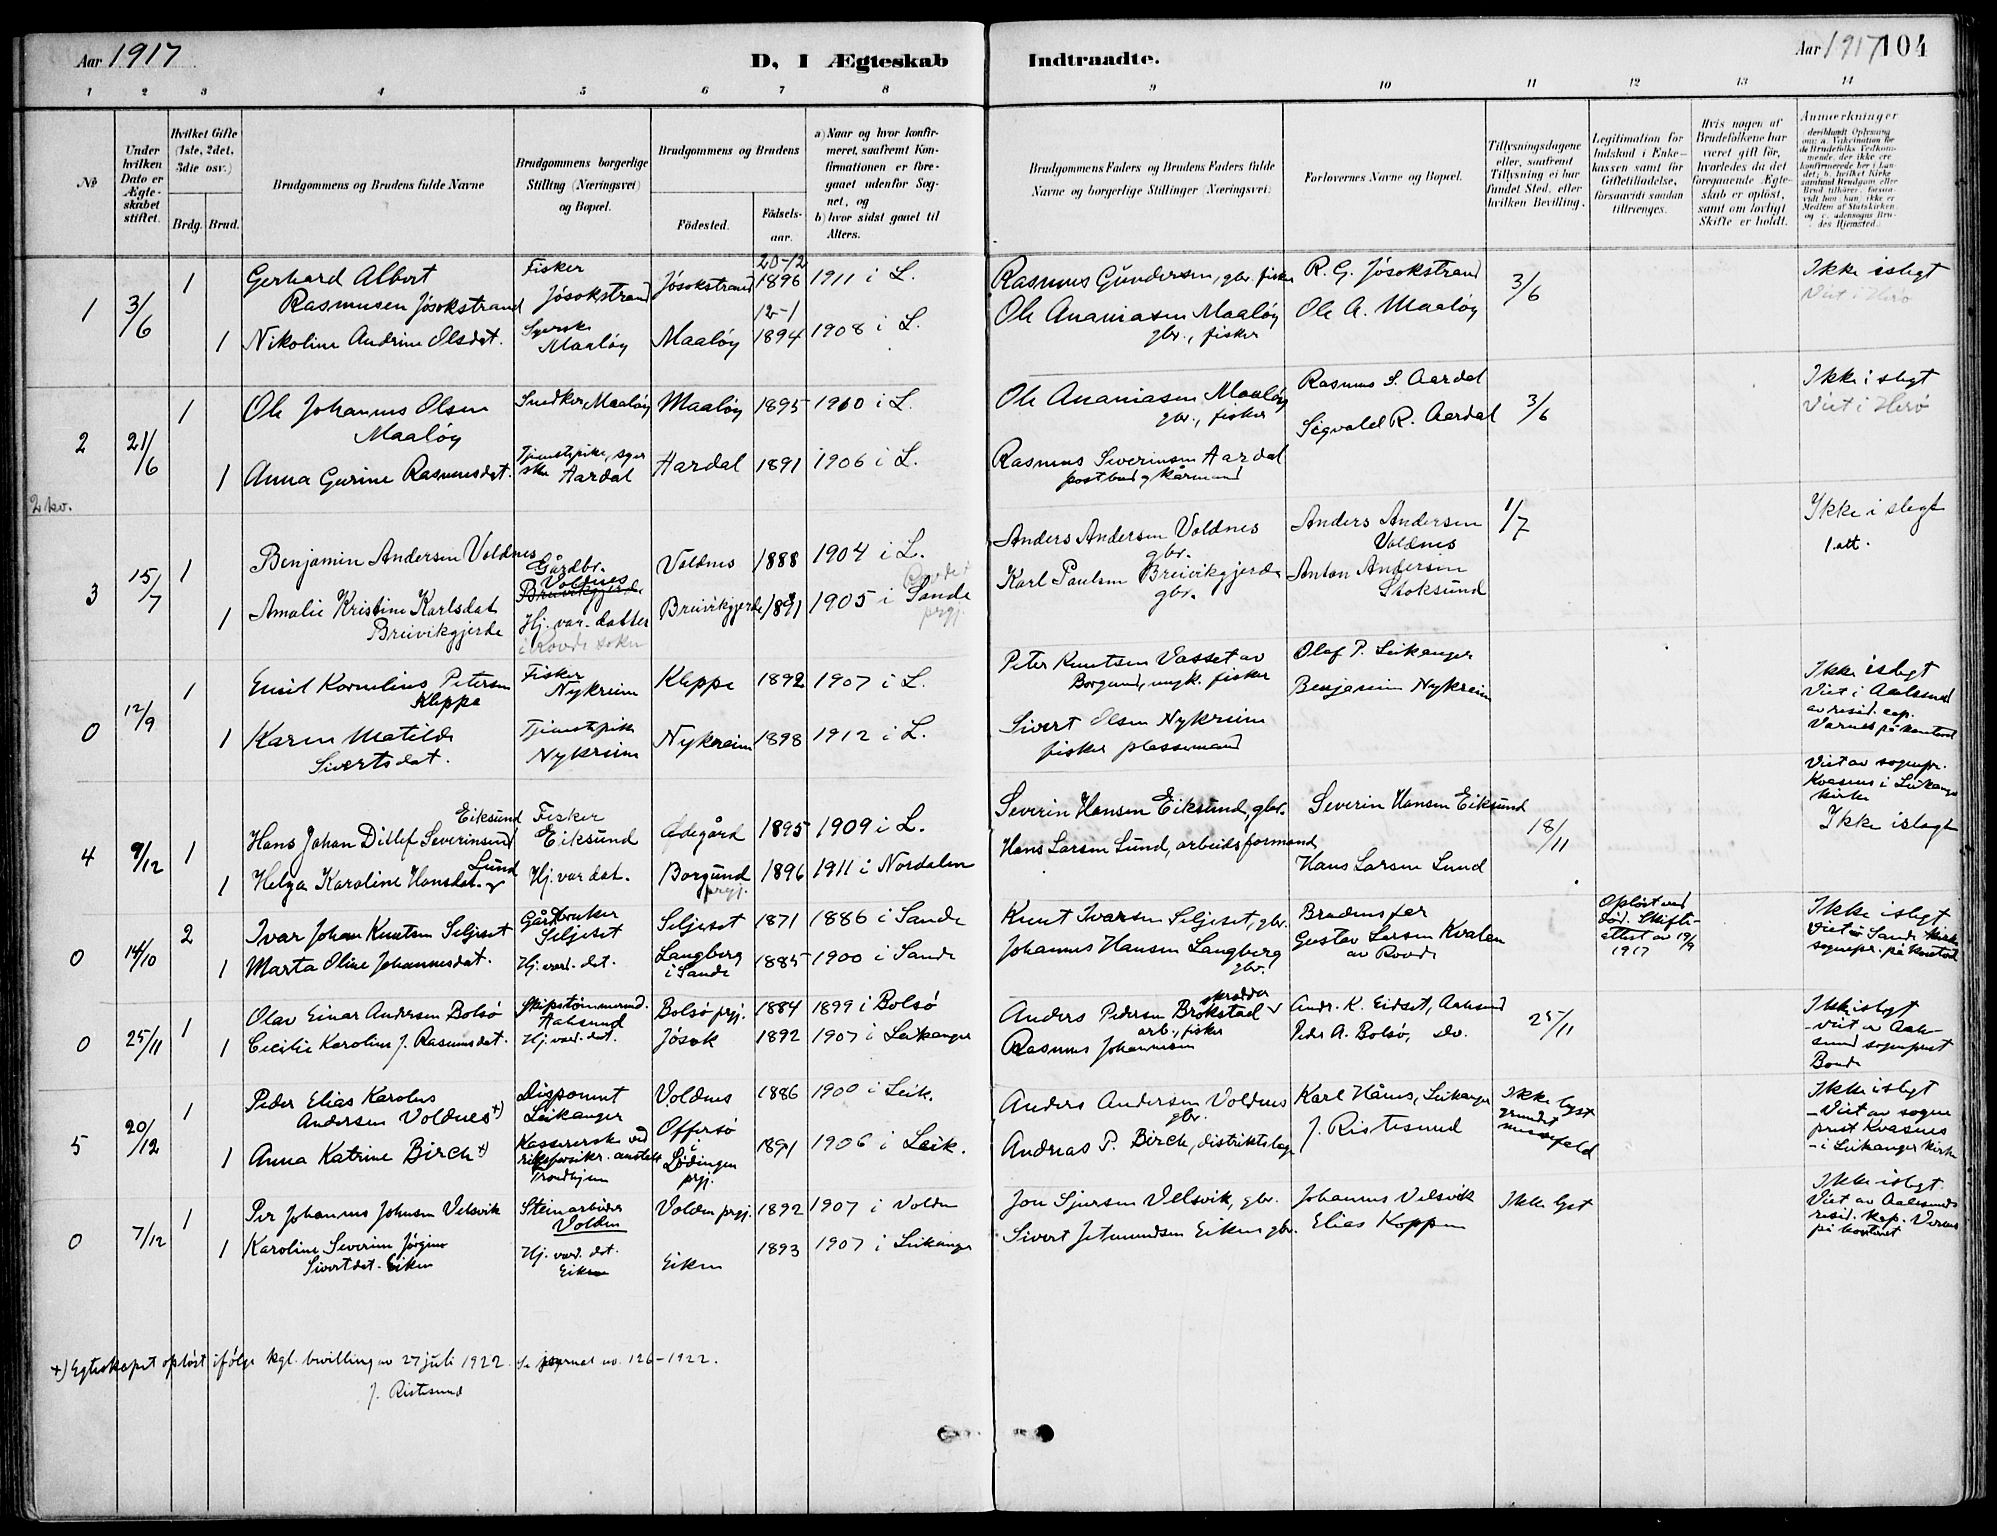 Aar 1917
D, I Ægteskab
Indtraadte.
Aar 1917 104
1 2 3 4 5 6 7 8 9 10 11 12 13 14
No
Under hvilken Dato er Ægteskabet stiftet.
Hvilket Gifte (1ste, 2det, 3die osv.)
Brdg. Brud.
Brudgommens og Brudens fulde Navne
Brudgommens borgerlige Stilling (Næringsvei) og Bopæl.
Brudgommens og Brudens
Fødested.
Fødselsaar.
a) Naar og hvor konfirmeret, saafremt Konfirmationen er foregaaet udenfor Sognet, og
b) hvor sidst gaaet til Alters.
Brudgommens Faders og Brudens Faders fulde Navne og borgerlige Stillinger (Næringsvei)
Forlovernes Navne og Bopæl.
Tillysningsdagene eller, saafremt Tillysning ei har fundet Sted, efter hvilken Bevilling.
Legitimation for Indskud i Enkekassen samt for Giftetilladelse, forsaavidt saadan tiltrænges.
Hvis nogen af Brudefolkene har været gift før, hvorledes da det foregaaende Ægteskab er opløst, samt om lovligt Skifte er holdt.
Anmærkninger
1 3/6 1 Gerhard Albert Rasmusen Jøsokstrand Fisker Jøsokstrand Jøsokstrand 20-12 1896 1911 i L. Rasmus Gundersen, gbr. fisker R. G. Jøsokstrand 3/6 Ikke i slegt
Viet i Herø
1 Nikoline Andrine Olsdat. Syerske Maaløy Maaløy 12-1 1894 1908 i L. Ole Ananiasen Maaløy gbr., fisker Ole A. Maaløy
2 21/6 1 Ole Johannes Olsen Maaløy Snedker, Maaløy Maaløy 1895 1910 i L. Ole Ananiasen Maaløy gbr., fisker Rasmus S. Aardal 3/6 Ikke i slegt
Viet i Herø
1 Anna Gurine Rasmusdat. Tjenestepike, syerske Aardal Aardal 1891 1906 i L. Rasmus Severinsen Aardal postbud og kårmand Sigvald R. Aardal
2 kv.
3 15/7 1 Benjamin Andersen Voldnes Gårdbr. Voldnes Voldnes 1888 1904 i L. Anders Andersen Voldnes gbr. Anders Andersen Voldnes 1/7 Ikke i slegt
1 att.
1 Amalie Kristine Karlsdat Breivikgjerde Breivikgjerde Hj. var. datter i Rovde sokn Breivikgjerde 1891 1905 i Sande prgj. Karl Paulsen Breivikgjerde gbr. Anton Andersen Stoksund
0 12/9 1 Emil Kornelius Petersen Kleppe Fisker Nykreim Kleppe 1892 1907 i L. Peter Knutsen Vasset av Borgund, ungk. fisker Olaf P. Leikanger Ikke i slegt
Viet i Aalesund av resid. cap. Varnes på kontoret
1 Karen Matilde Sivertsdat. Tjenestepike Nykreim Nykreim 1898 1912 i L. Sivert Olsen Nykreim fisker plassemand Benjamin Nykreim
4 9/12 1 Hans Johan Ditlef Severinsen Eiksund Fisker Eiksund Ødegård 1895 1909 i L. Severin Hansen Eiksund, gbr. Severin Hansen Eiksund 18/11 Viet av sognepr. Kvasnes i Leikanger kirke
Ikke i slegt
1 Helga Karoline Hansdat. Lund Hj. var dat. Borgund prgj. 1896 1911 i Nordalen Hans Larsen Lund, arbeidsformand Hans Larsen Lund
0 14/10 2 Ivar Johan Knutsen Seljeset Gårdbruker Seljeset Seljeset 1871 1886 i Sande Knut Ivarsen Seljeset, gbr. Brudens far Opløst ved død. Skifteattest av 19/9 1917 Ikke i slegt
Viet i Sande kirke sognepr. på kontoret
1 Marta Oline Johannesdat. Hj. vær. dat. Langberg i Sande 1885 1900 i Sande Johannes Hansen Langberg gbr. Gustav Larsen Kvalen av Rovde
0 25/11 1 Olav Einar Andersen Bolsø Skipstømmermd. Aalesund Bolsø prgj. 1884 1899 i Bolsø Anders Pedersen Brokstad skrædder Andr. K. Eidset, Aalesund 25/11 Ikke i slegt
- viet av Aalesund sogneprest Bonde
1 Cecilie Karoline J. Rasmusdat. Hj. værd. dat. Jøsok 1892 1907 i Leikanger Rasmus Johannesen arb., fisker Peder A. Bolsø, do.
5 20/12 1 Peder Elias Karolus Andersen Voldnes +) Disponent Leikanger Voldnes 1886 1900 i Leik. Anders Andersen Voldnes gbr. Karl Hånes, Leikanger Ikke lyst grundet messefald Ikke i slegt
- Viet av sogneprest Kvasnes
- i Leikanger kirke
1 Anna Katrine Birch +) Kassererske ved riksforsikr. anstalt Trondhjem Offersø i Lødingen prgj. 1891 1906 i Leik. Andreas P. Birch, distriktslæge J. Ristesund
0 7/12 1 Per Johannes Johnsen Velsvik Steinarbeider Volden Volden prgj. 1892 1907 i Volden Jon Sjursen Velsvik, gbr. Johannes Velsvik Ikke lyst Ikke i slegt.
Viet av Aalesunds resid. kap. på kontoret
1 Karoline Severine Jørgine Sivertdat. Eiken Hj. værd. dat. Eiken Eiken 1893 1907 i Leikanger Sivert Jetmundsen Eiken gbr. Elias Koppen
+) Egteskapet opløst ifølge kgl. bevilling av 27 juli 1922. Se journal no. 126-1922.
J. Ristesund